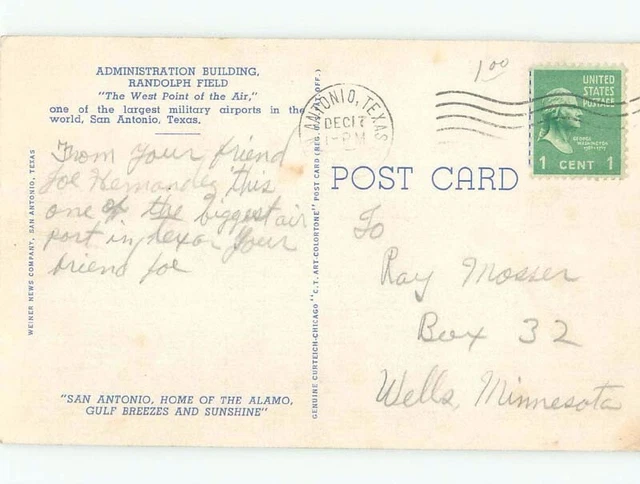 ADMINISTRATION BUILDING,
RANDOLPH FIELD
"The West Point of the Air,"
one of the largest military airports in the
world, San Antonio, Texas.
From your friend
Joe Hernandez this
one of the biggest air
port in Texas Your
friend Joe
"SAN ANTONIO, HOME OF THE ALAMO,
GULF BREEZES AND SUNSHINE"
WEINER NEWS COMPANY, SAN ANTONIO, TEXAS
GENUINE CURTEICH-CHICAGO "C.T. ART-COLORTONE" POST CARD (REG. U.S. PAT. OFF.)
ANTONIO, TEXAS
DEC 17
1-PM
1 00
UNITED
STATES
POSTAGE
GEORGE
WASHINGTON
1 CENT 1
POST CARD
To
Ray Mosser
Box 32
Wells, Minnesota